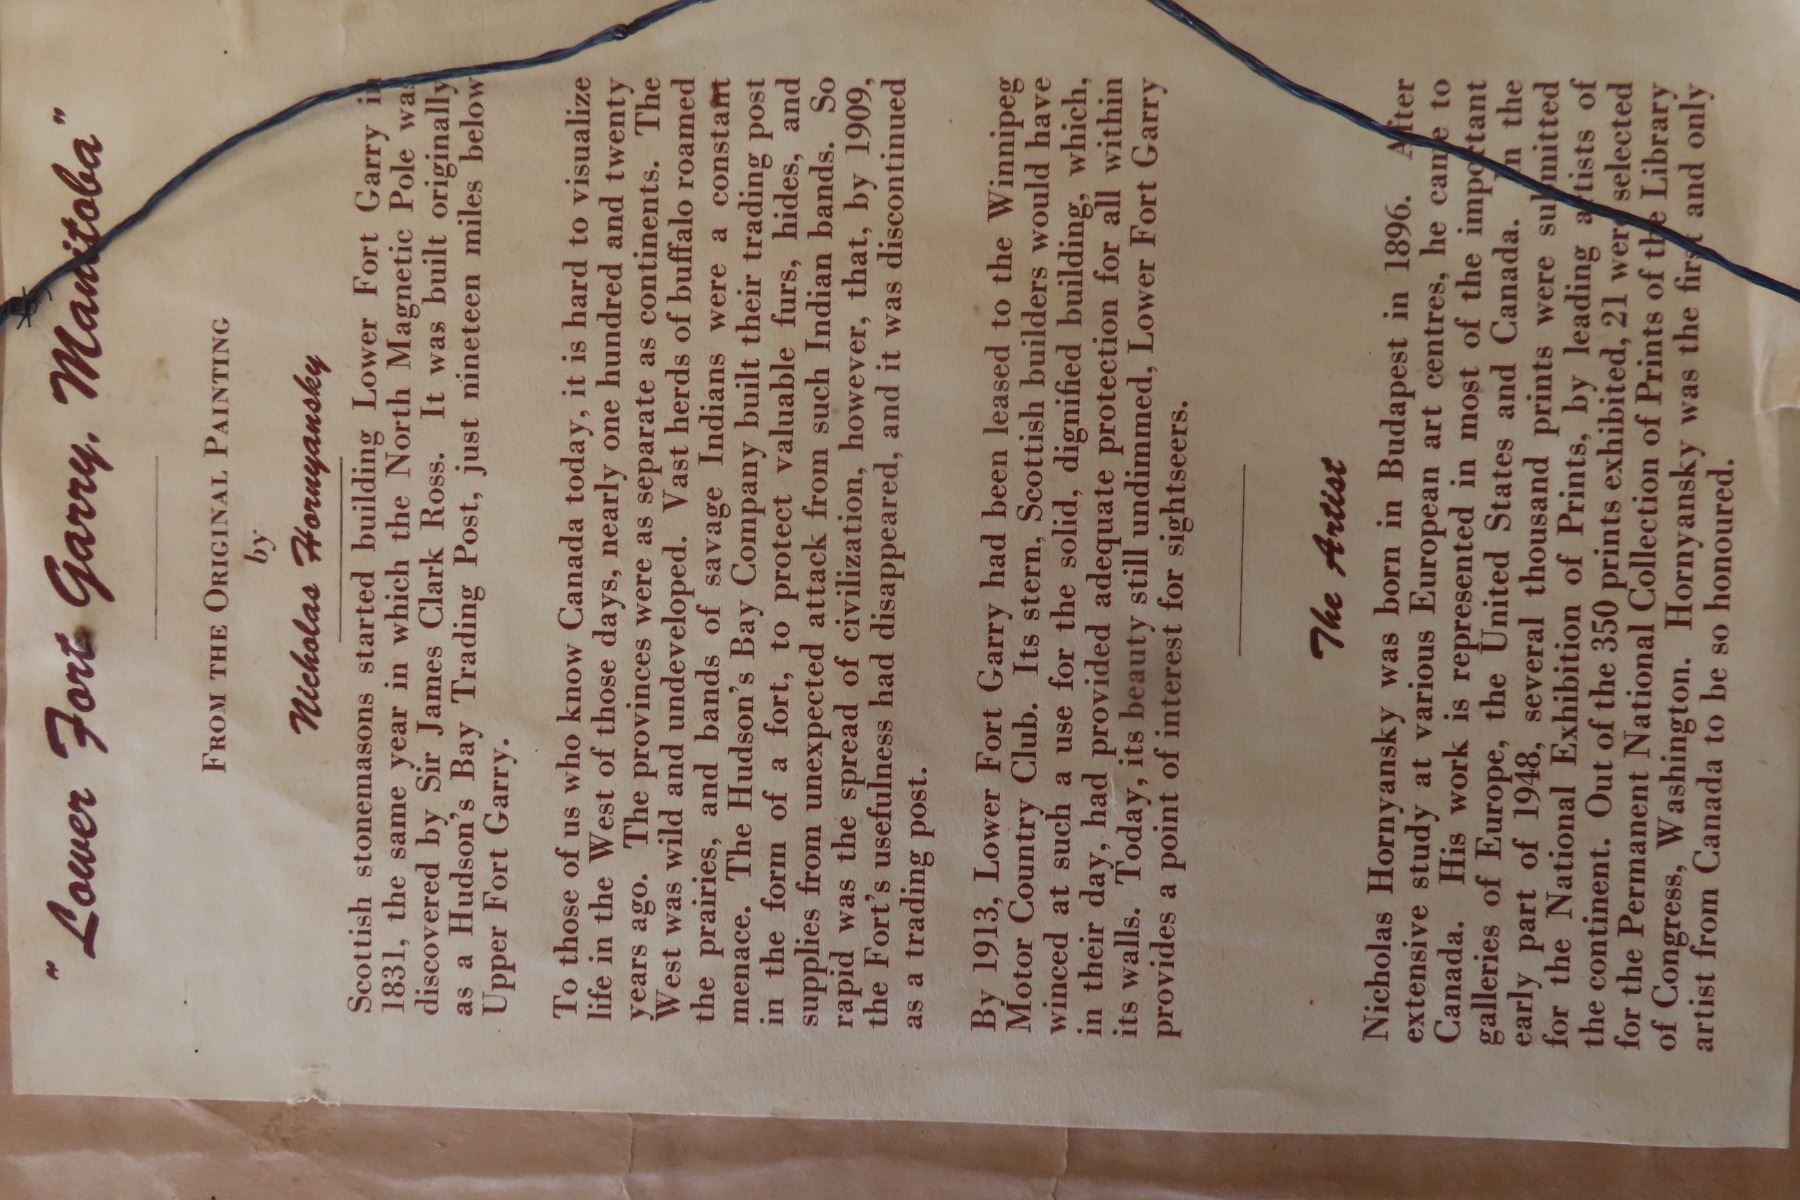 "Lower Fort Garry, Manitoba"
FROM THE ORIGINAL PAINTING
by
Nicholas Hornyansky
Scottish stonemasons started building Lower Fort Garry in
1831, the same year in which the North Magnetic Pole was
discovered by Sir James Clark Ross. It was built originally
as a Hudson's Bay Trading Post, just nineteen miles below
Upper Fort Garry.
To those of us who know Canada today, it is hard to visualize
life in the West of those days, nearly one hundred and twenty
years ago. The provinces were as separate as continents. The
West was wild and undeveloped. Vast herds of buffalo roamed
the prairies, and bands of savage Indians were a constant
menace. The Hudson's Bay Company built their trading post
in the form of a fort, to protect valuable furs, hides, and
supplies from unexpected attack from such Indian bands. So
rapid was the spread of civilization, however, that, by 1909,
the Fort's usefulness had disappeared, and it was discontinued
as a trading post.
By 1913, Lower Fort Garry had been leased to the Winnipeg
Motor Country Club. Its stern, Scottish builders would have
winced at such a use for the solid, dignified building, which,
in their day, had provided adequate protection for all within
its walls. Today, its beauty still undimmed, Lower Fort Garry
provides a point of interest for sightseers.
The Artist
Nicholas Hornyansky was born in Budapest in 1896. After
extensive study at various European art centres, he came to
Canada. His work is represented in most of the important
galleries of Europe, the United States and Canada. In the
early part of 1948, several thousand prints were submitted
for the National Exhibition of Prints, by leading artists of
the continent. Out of the 350 prints exhibited, 21 were selected
for the Permanent National Collection of Prints of the Library
of Congress, Washington. Hornyansky was the first and only
artist from Canada to be so honoured.